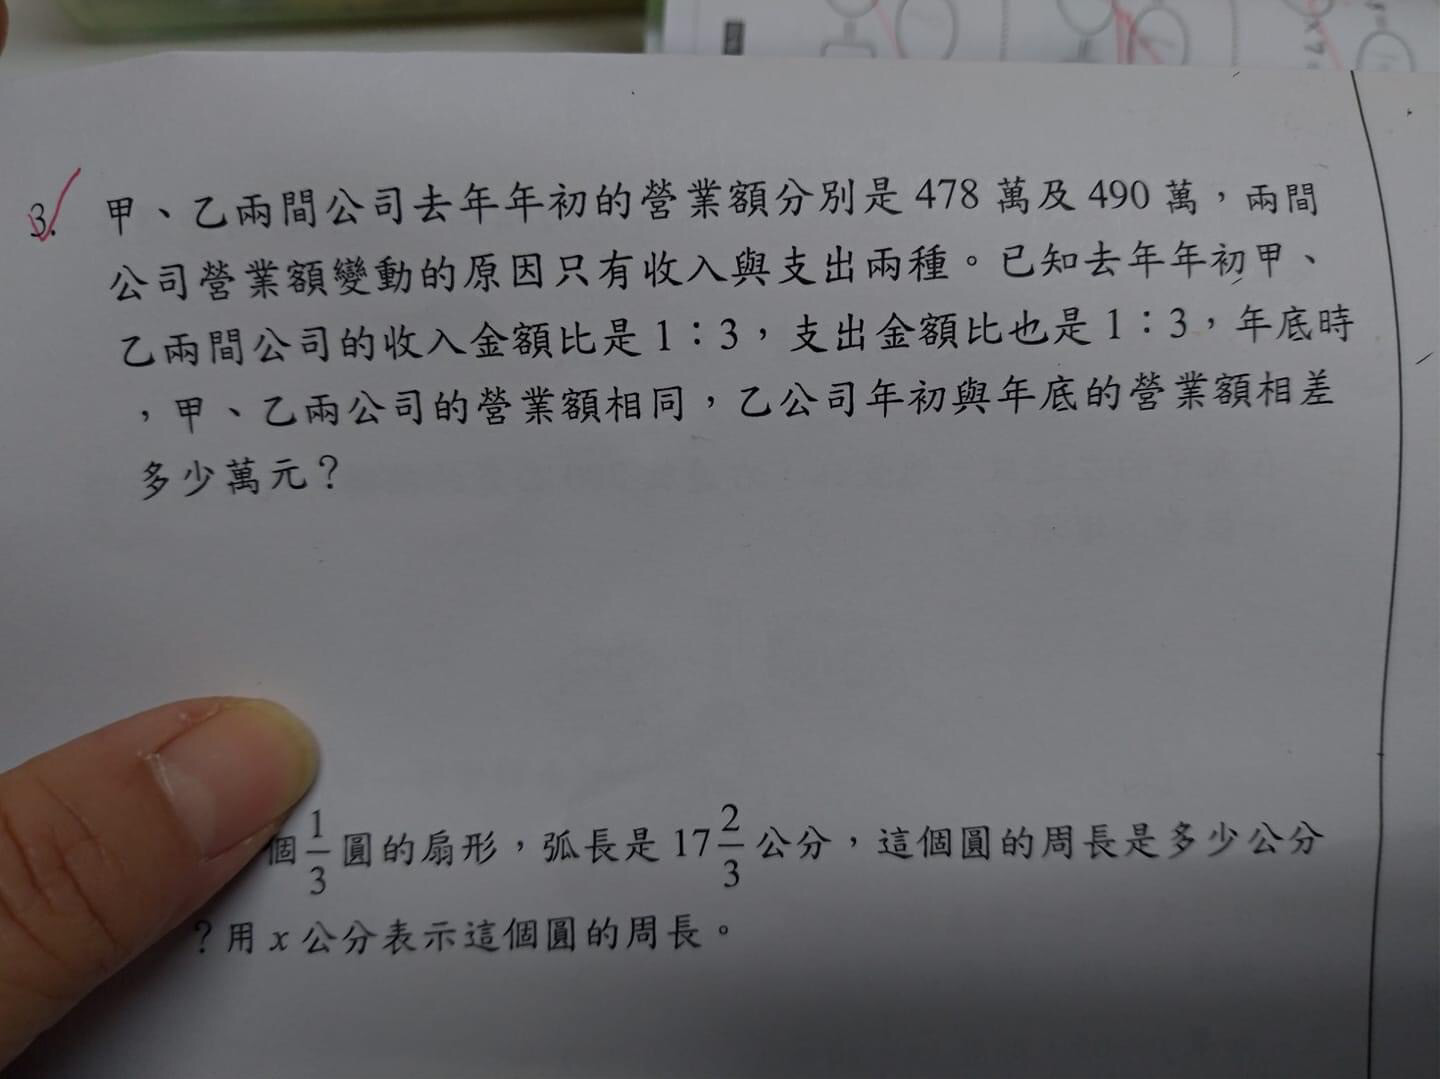 3. 甲、乙兩間公司去年年初的營業額分別是 478 萬及 490 萬，兩間
公司營業額變動的原因只有收入與支出兩種。已知去年年初甲、
乙兩間公司的收入金額比是 1：3，支出金額比也是 1：3，年底時
，甲、乙兩公司的營業額相同，乙公司年初與年底的營業額相差
多少萬元？
個 1/3 圓的扇形，弧長是 17 2/3 公分，這個圓的周長是多少公分
？用 x 公分表示這個圓的周長。